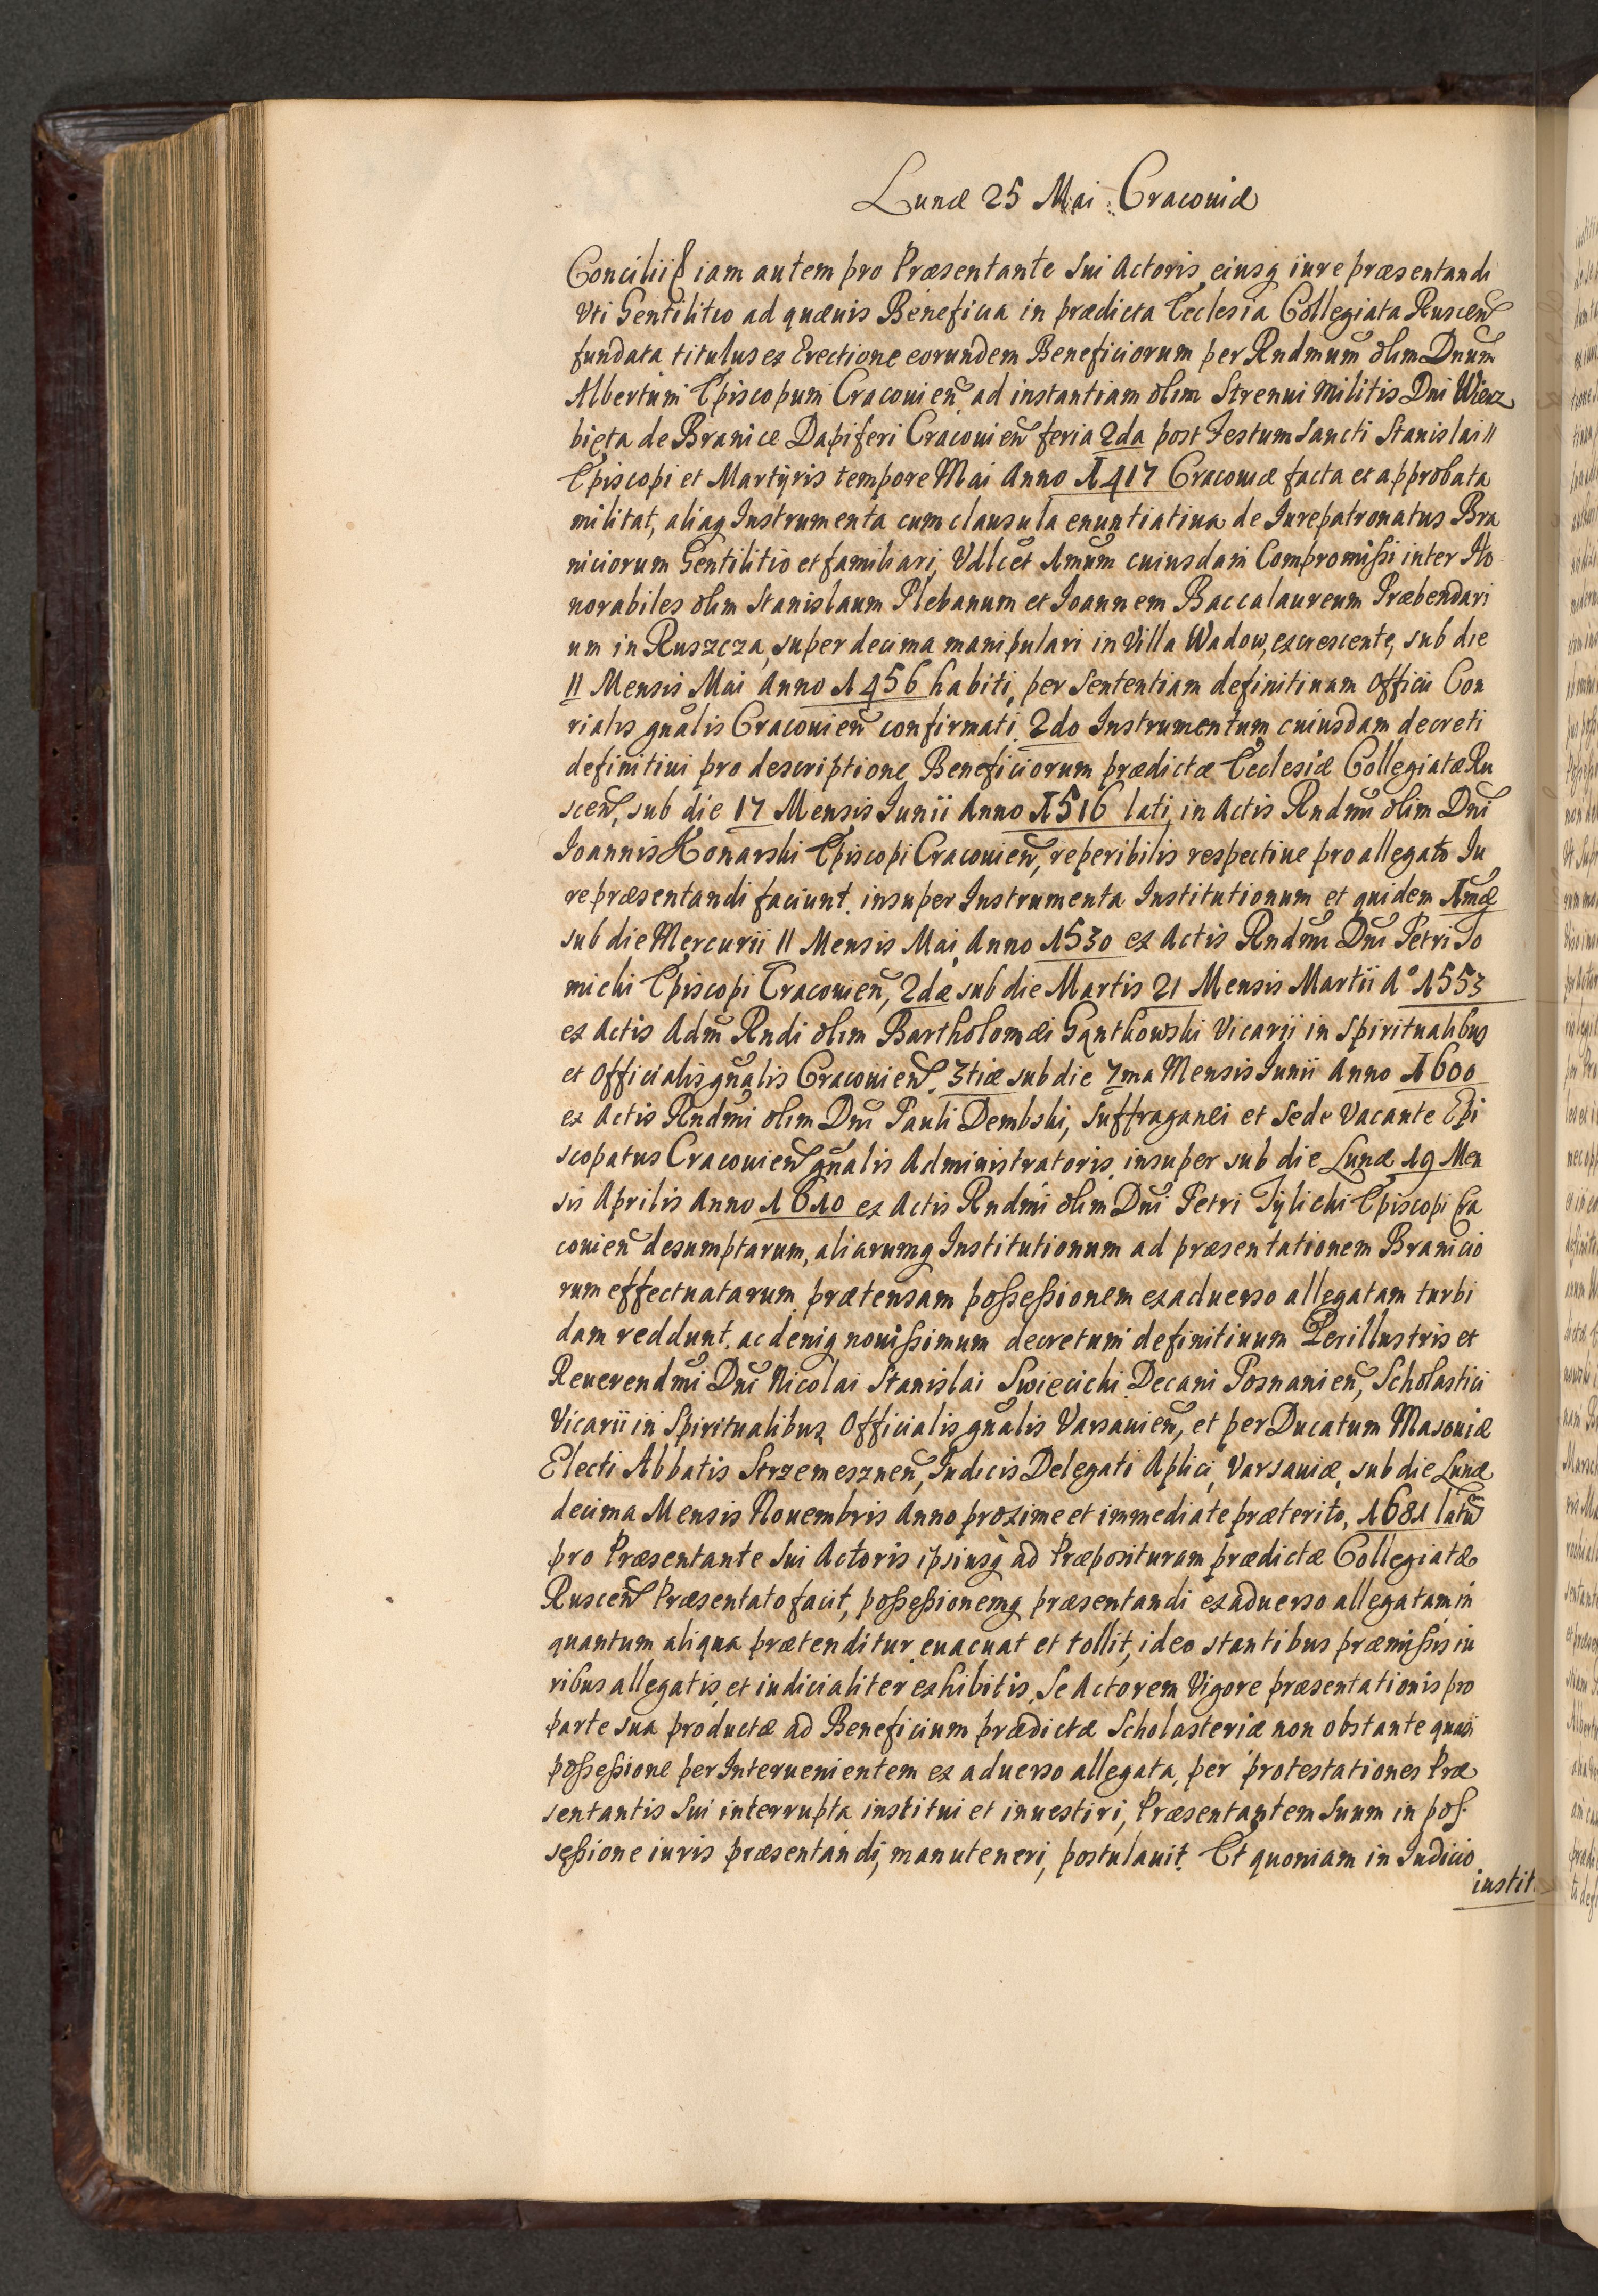 Lunæ 25 Mai Cracouiæ
Conciliiꝭ iam autem pro Præsentante Sui Actoris, eiusq iure præsentandi
Vti Gentilitio ad quæuis Beneficia in prædicta Ecclesia Collegiata Ruscen̄
fundata titulus ex Erectione eorundem Beneficiorum per Rndmum olim Dnum
Albertum Episcopum Cracouien̄ ad instantiam olim Strenui Militis Dni Wierz
bięta de Branice Dapiferi Cracouien̄ feria 2da post Festum Sancti Stanislai
Episcopi et Martyris tempore Mai Anno 1417 Cracouiæ facta et approbata
militat, aliaq Instrumenta cum clausula enuntiatiua de Iurepatronatus Bra
niciorum Gentilitio et familiari, Vdlcet 1mum cuiusdam Compromissi inter Ho
norabiles olim Stanislaum Plebanum et Ioannem Baccalaureum Præbendari
um in Ruszcza, super decima manipulari in Villa Wadow, excrescente, sub die
11 Mensis Mai Anno 1456 habiti, per Sententiam definitiuam Officii Con
rialis gnalis Cracouien̄ confirmati. 2do Instrumentum cuiusdam decreti
definitiui pro descriptione Beneficiorum prædictæ Ecclesiæ Collegiatæ Ru
scen̄, sub die 17 Mensis Iunii Anno 1516 lati, in Actis Rndmi olim Dni
Ioannis Konarski Episcopi Cracouien̄, reperibilis respectiue pro allegato Iu
re præsentandi faciunt. insuper Instrumenta Institutionum et quidem 1mæ
sub die Mercurii 11 Mensis Mai, Anno 1530 ex Actis Rndmi Dni Petri To
micki Episcopi Cracouien̄, 2dæ sub die Martis 21 Mensis Martii A° 1553
ex Actis Adm Rndi olim Bartholomæi Gąntkowski Vicarii in Spiritualibus
et Officialis gnalis Cracouien̄, 3tiæ sub die 7ma Mensis Iunii Anno 1600
ex Actis Rndmi olim Dni Pauli Dembski, Suffraganei et Sede Vacante Epi
scopatus Cracouien̄ gnalis Administratoris, insuper sub die Lunæ 19 Men
sis Aprilis Anno 1610 ex Actis Rndmi olim Dni Petri Tylicki Episcopi Cra
couien̄ desumptarum, aliarumq Institutionum ad præsentationem Branicio
rum effectuatarum prætensam possessionem ex aduerso allegatam turbi
dam reddunt. ac deniq nouissimum decretum definitiuum Perillustris et
Reuerendmi Dni Nicolai Stanislai Swięcicki Decani Posnanien̄, Scholastici
Vicarii in Spiritualibus Officialis gnalis Varsauien̄, et per Ducatum Masouiæ
Electi Abbatis Strzemesznen̄, Iudicis Delegati Aplici, Varsauiæ, sub die Lunæ
decima Mensis Nouembris Anno proxime et immediate præterito, 1681 latum
pro Præsentante Sui Actoris ipsiusq ad Præposituram prædictæ Collegiatæ
Ruscen̄ Præsentato facit, possessionemq præsentandi ex aduerso allegatam in
quantum aliqua prætenditur euacuat et tollit, ideo stantibus præmissis iu
ribus allegatis, et iudicialiter exhibitis, Se Actorem Vigore præsentationis pro
parte sua productæ ad Beneficium prædictæ Scholasteriæ non obstante quasi
possessione per Interuenientem ex aduerso allegata, per protestationes Præ
sentantis Sui interrupta institui et inuestiri, Præsentantem Suum in pos
sessione iuris præsentandi, manuteneri, postulauit. Et quoniam in Iudicio
instit